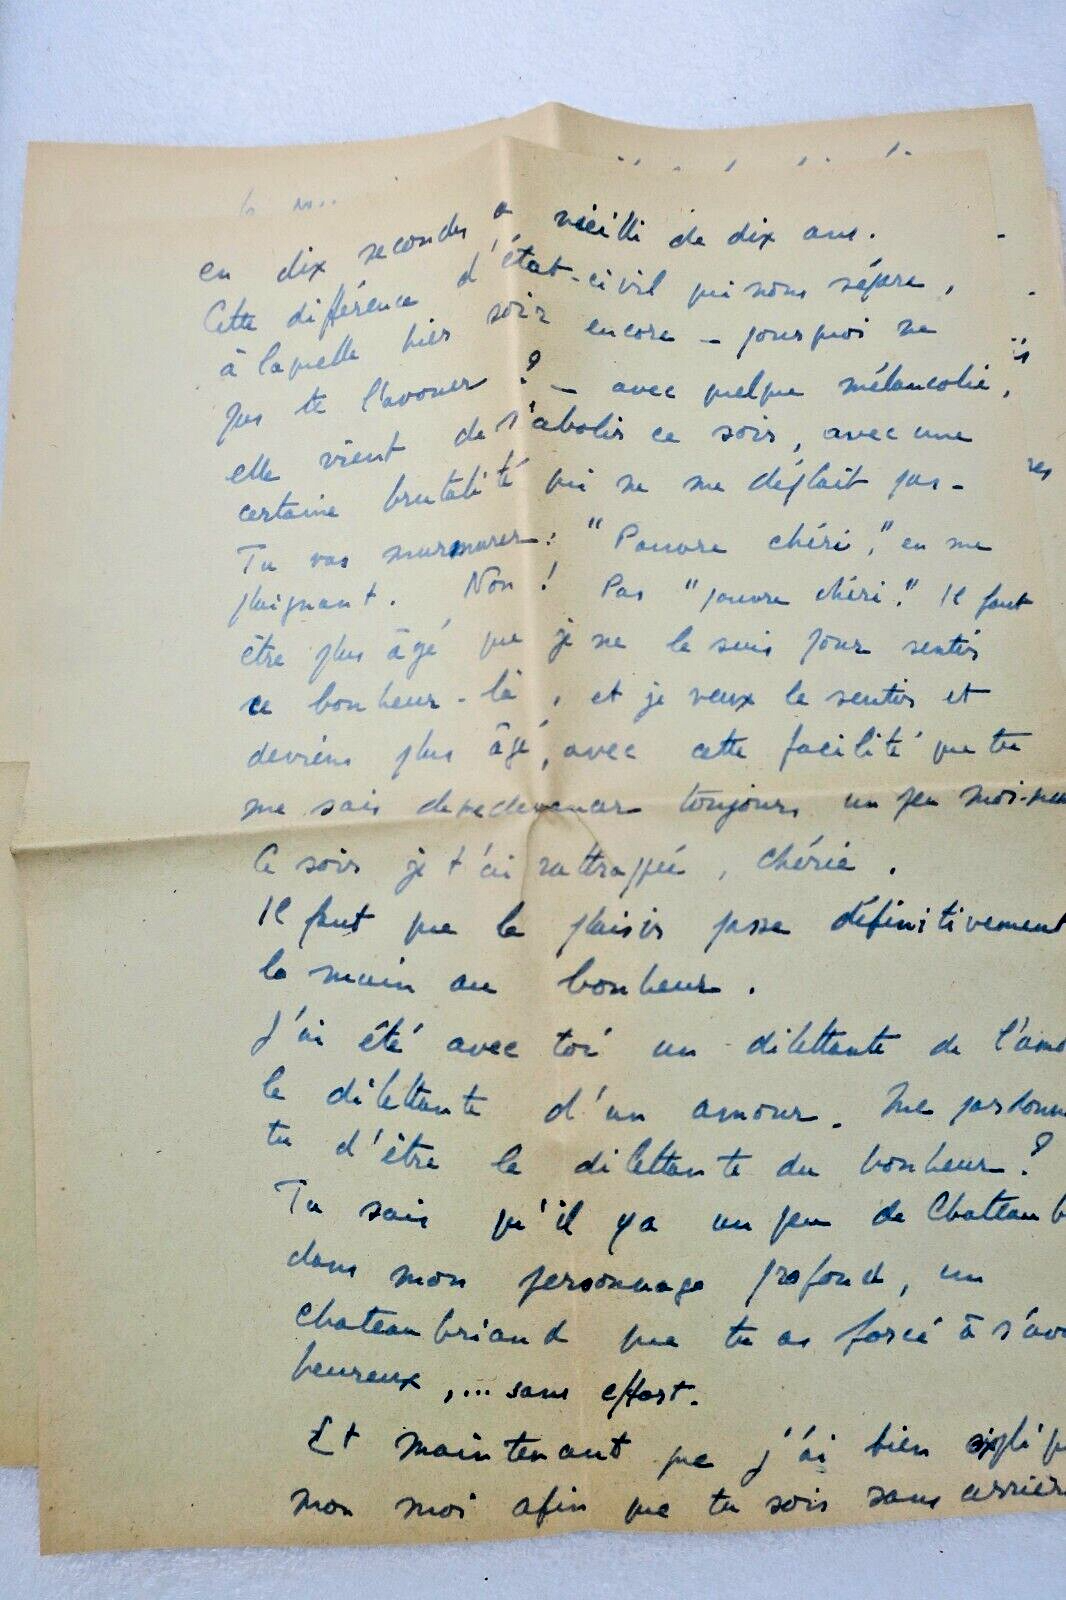 en dix secondes a vieilli de dix ans.
Cette différence d'état-civil qui nous sépare,
à laquelle hier soir encore - pourquoi ne
pas te l'avouer ? - avec quelque mélancolie,
elle vient de s'abolir ce soir, avec une
certaine brutalité qui ne me déplait pas -
Tu vas murmurer : "Pauvre chéri", en me
plaignant. Non ! Pas "pauvre chéri". Il faut
être plus âgé que je ne le suis pour sentir
ce bonheur-là, et je veux le sentir et
devenir plus âgé, avec cette facilité que tu
me sais de redevenir toujours un peu moi-mem
Ce soir je t'ai rattrappée, chérie.
Il faut que le plaisir passe définitivement
la main au bonheur.
J'ai été avec toi un dilettante de l'amo
le dilettante d'un amour. Me pardonn
tu d'être le dilettante du bonheur ?
Tu sais qu'il y a un peu de Chateaub
dans mon personnage profond, un
Chateaubriand que tu as forcé à s'avo
heureux,... sans effort.
Et maintenant que j'ai bien expliqu
mon moi afin que tu sois sans arrièr